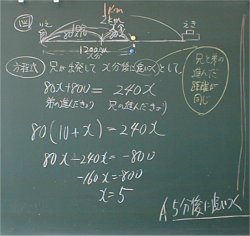 図
1km
2km
いえ
えき
1200m
方程式 兄が出発してx分後に追いつくとして、
80x+800= 240x
弟の進んだきょり 兄の進んだきょり
80(10+x)=240x
80x-240x=-800
-160x=-800
x=5
兄と弟の
進んだ
距離が
同じ
A 5分後に追いつく